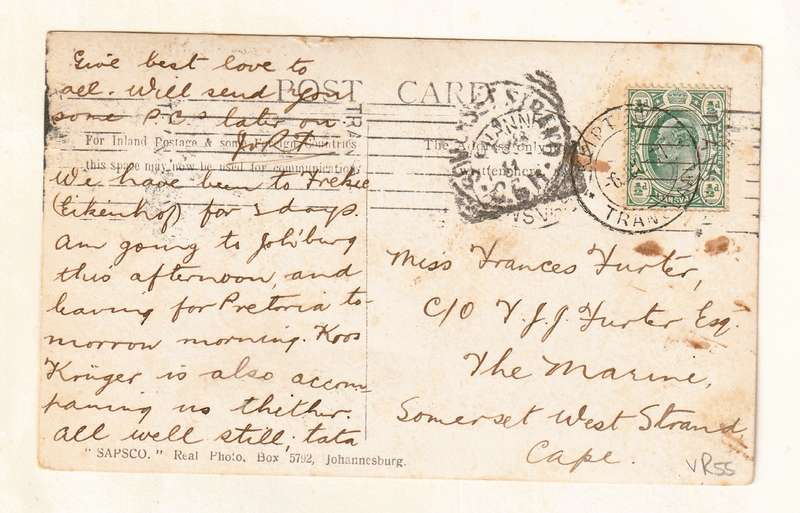 Give best love to
all. Will send you
some P.C.s later on
POST CARD
For Inland Postage & some Foreign Countries
this space may now be used for communication
The Address only
We have been to Frekie
(Eikenhof) for 3 days.
Am going to Joh'burg
this afternoon, and
leaving for Pretoria to-
morrow morning. Koos
Krüger is also accom-
paning us thither.
All well still; tata
"SAPSCO." Real Photo, Box 5792, Johannesburg.
SOMERSET STRAND
TRANSVAAL
Miss Frances Furter,
C/O V.J.J. Furter Esq.
The Marine,
Somerset West Strand
Cape.
VR55